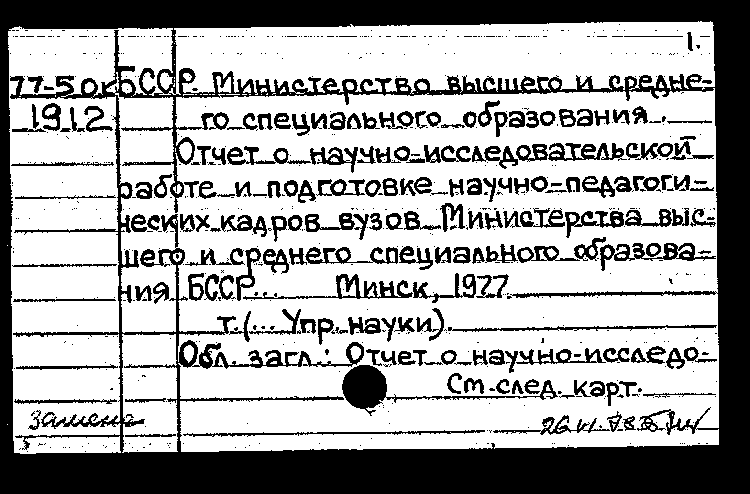 1.
77-5 ок БССР. Министерство высшего и средне-
1912 го специального образования.
Отчет о научно-исследовательской
работе и подготовке научно-педагоги-
ческих кадров вузов Министерства выс-
шего и среднего специального образова-
ния БССР... Минск, 1977.
т. (... Упр. науки).
Обл. загл.: Отчет о научно-исследо-
См. след. карт.
замена